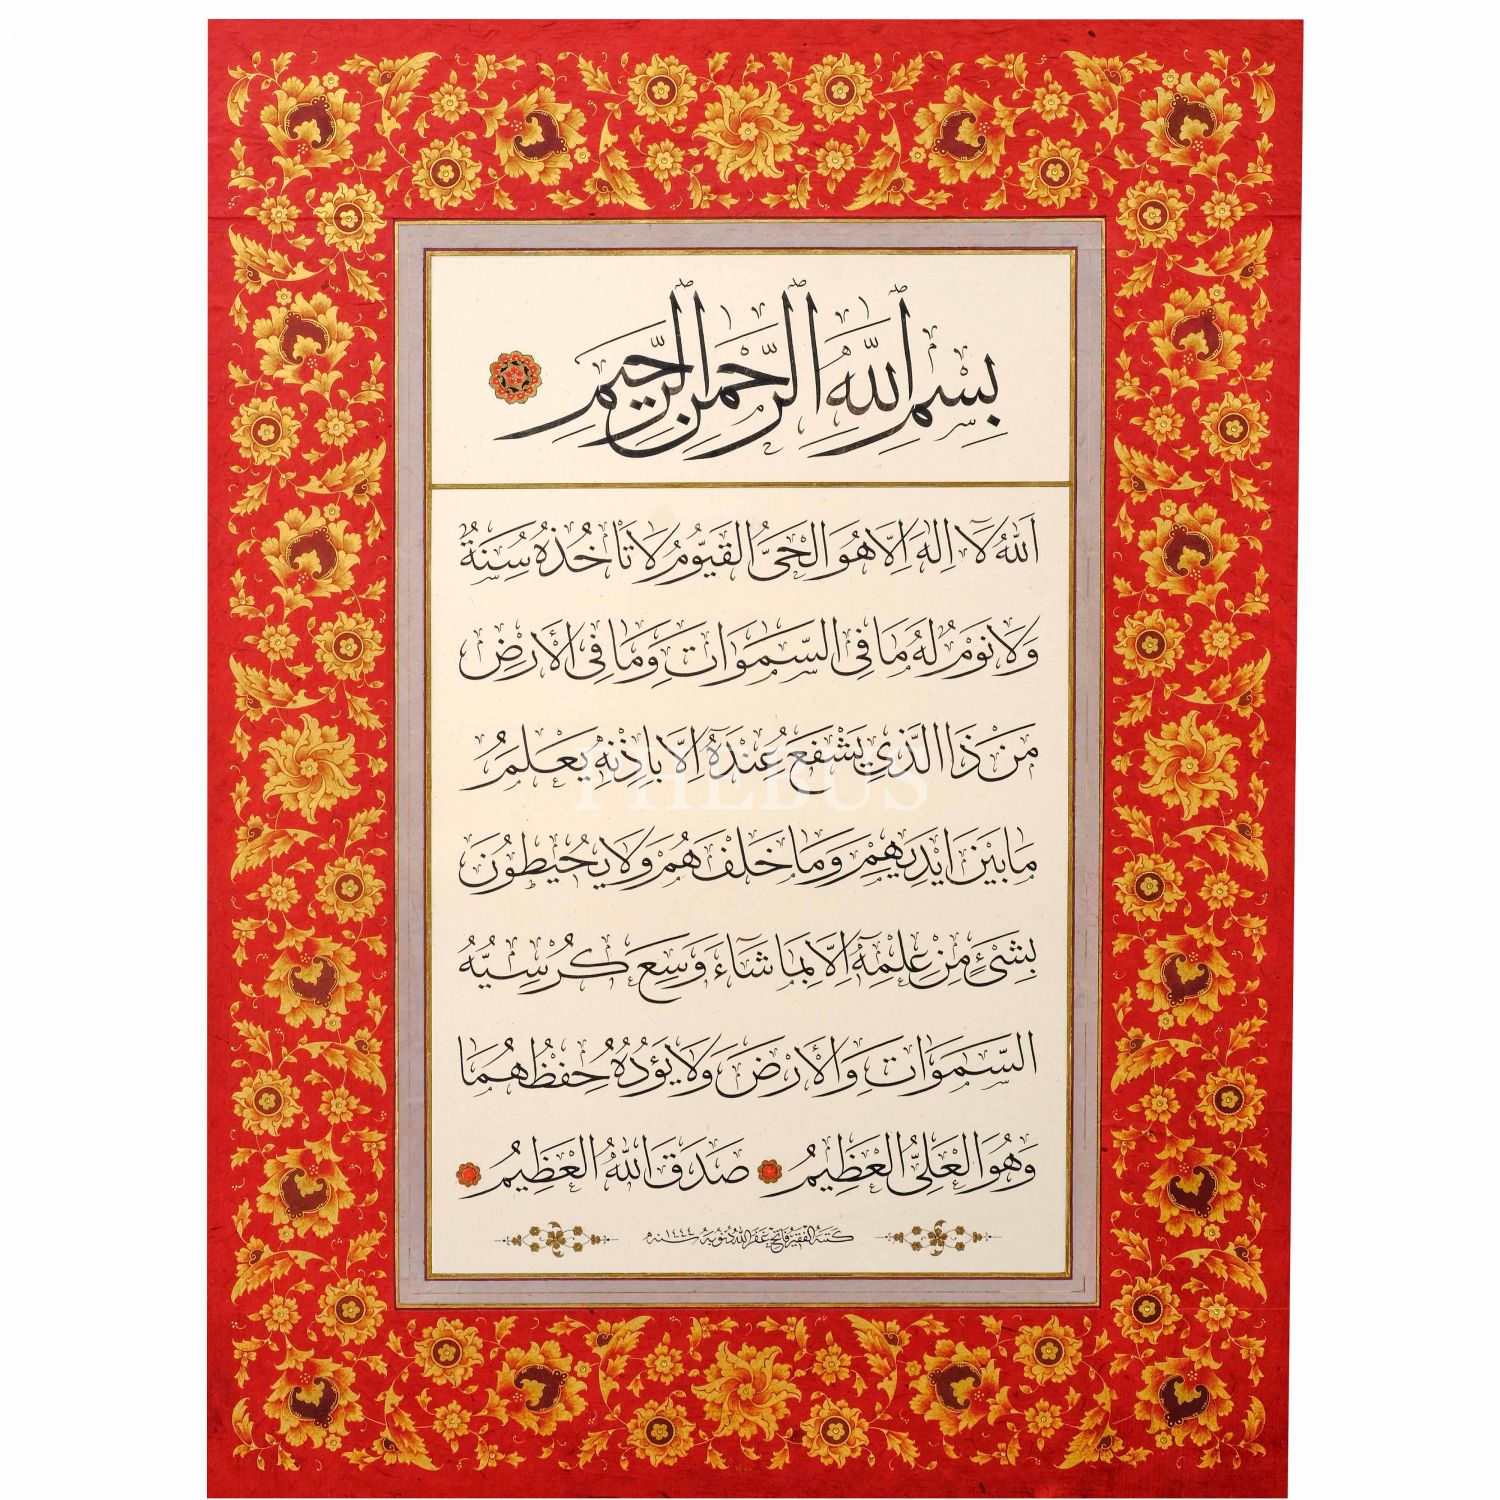 بِسْمِ اللهِ الرَّحْمٰنِ الرَّحِيمِ
اَللهُ لَآ اِلٰهَ اِلَّا هُوَ الْحَىُّ الْقَيُّومُ لَا تَاْخُذُهُ سِنَةٌ
وَلَا نَوْمٌ لَهُ مَا فِى السَّمٰوَاتِ وَمَا فِى الْأَرْضِ
مَنْ ذَا الَّذِي يَشْفَعُ عِنْدَهُٓ اِلَّا بِاِذْنِهِ يَعْلَمُ
مَا بَيْنَ اَيْدِيهِمْ وَمَا خَلْفَهُمْ وَلَا يُحِيطُونَ
بِشَىْءٍ مِنْ عِلْمِهِٓ اِلَّا بِمَا شَآءَ وَسِعَ كُرْسِيُّهُ
السَّمٰوَاتِ وَالْأَرْضَ وَلَا يَؤُدُهُ حِفْظُهُمَا
وَهُوَ الْعَلِىُّ الْعَظِيمُ صَدَقَ اللهُ الْعَظِيمُ
كتبه الفقير فاتح غفر الله ذنوبه سنه ١٤٤٤
PHEBUS